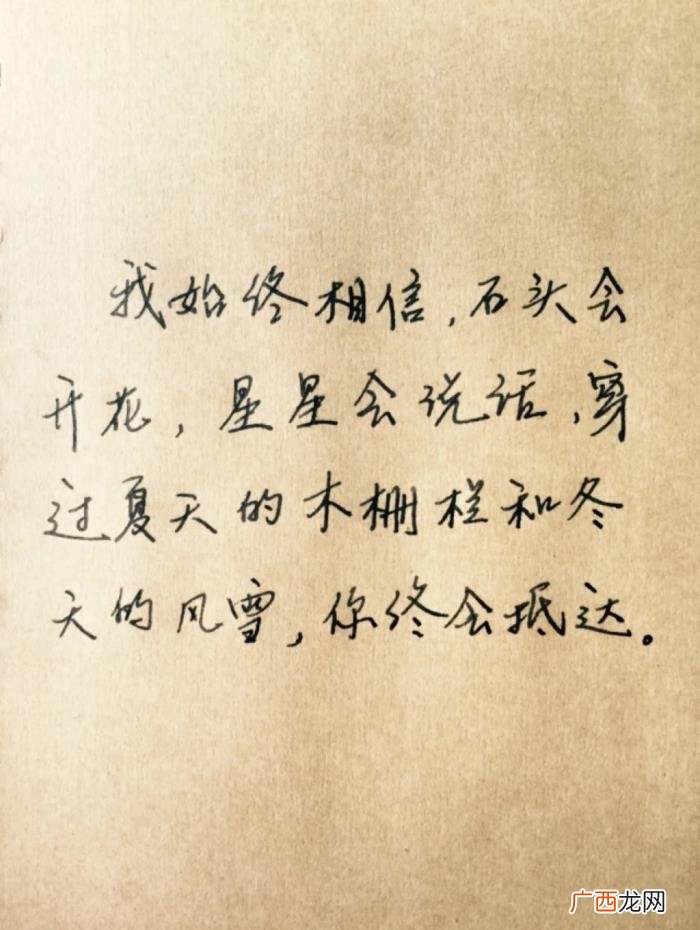 我始终相信,石头会
开花,星星会说话,穿
过夏天的木栅栏和冬
天的风雪,你终会抵达。
广西龙网